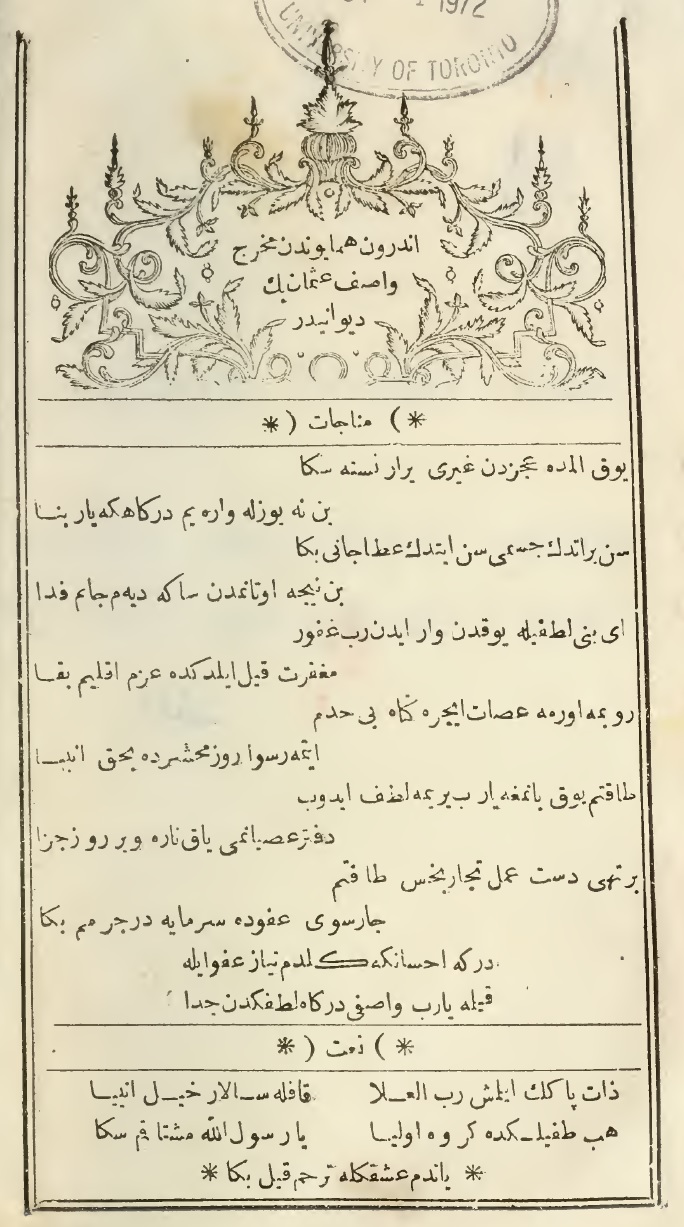 1972
UNIVERSITY OF TORONTO
اندرون همايوندن مخرج
واصف عثمان بك
ديوانيدر
* ( مناجات ) *
يوق المده عجزدن غيرى يرار نسته سكا
بن نه يوزله واره يم دركاهكه يار بنا
سن يراتدك جسمى سن ايتدك عطا جانى بكا
بن نيجه اوتانمدن ساكه ديه م جانم فدا
اى بنى لطفيله يوقدن وار ايدن رب غفور
مغفرت قيل ايلدكده عزم اقليم بقا
رو يمه اورمه عصات ايچره كناه بى حدم
ايتمه رسوا روز محشرده بحق انبيا
طاقتم يوق يانمغه يارب يريمه لطف ايدوب
دفتر عصيانمى ياق ناره ويرروز جزا
بر تهى دست عمل تجار بخس طاقتم
چارسوى عفوده سرمايه در جرمم بكا
دركه احسانكه كلدم نياز عفوايله
قيله يارب واصفى دركاه لطفكدن جدا
* ( نعت ) *
ذات پاكك ايلمش رب العلا قافله سالار خيل انبيا
هب طفيلكده كروه اوليا يا رسول الله مشتاقم سكا
* ياندم عشقكله ترحم قيل بكا *